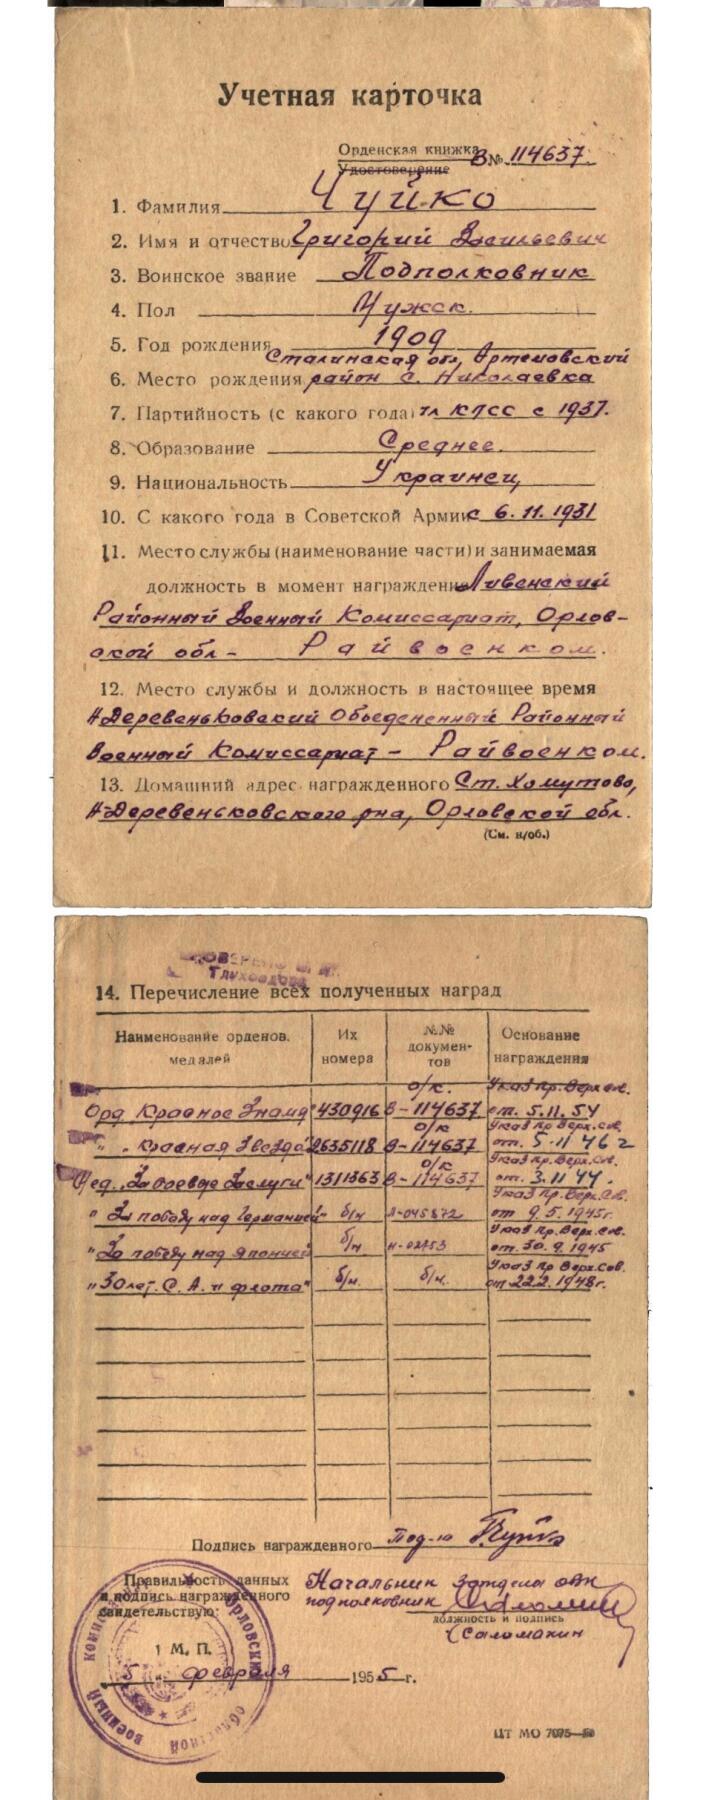 Учетная карточка
Орденская книжка
Удостоверение
В № 114637
1. Фамилия Чуйко
2. Имя и отчество Григорий Васильевич
3. Воинское звание Подполковник
4. Пол Мужск.
5. Год рождения 1909
Сталинская обл, Артемовский
6. Место рождения район с. Николаевка
7. Партийность (с какого года) чл КПСС с 1937.
8. Образование Среднее.
9. Национальность Украинец
10. С какого года в Советской Армии с 6. 11. 1931
11. Место службы (наименование части) и занимаемая
должность в момент награждения Ливенский
Районный Военный Комиссариат, Орлов-
ской обл - Райвоенком.
12. Место службы и должность в настоящее время
Н-Деревеньковский Объедененный Районный
Военный Комиссариат - Райвоенком.
13. Домашний адрес награжденного Ст. Хомутово,
Н-Деревеньковского рна, Орловской обл.
(См. н/об.)
14. Перечисление всех полученных наград
Наименование орденов, медалей Их номера №№ докумен-тов Основание награждения
о/к. Указ Пр. Верх. сов.
Орд Красное Знамя 430916 В-114637 от. 5.11.54
о/к Указ Пр. Верх. сов.
" " Красная Звезда 2635118 В-114637 от. 5-11 46 г
о/к Указ Пр. Верх. Сов.
Мед. "За боевые Заслуги" 1311363 В-114637 от. 3.11 44.
Указ Пр. Верх. Сов.
" За победу над Германией" б/н Л-045872 от 9.5.1945г.
Указ Пр. Верх. Сов.
"За победу над Японией б/н Н-02753 от. 30. 9. 1945
Указ Пр Верх. Сов.
"30 лет. С. А. и флота" б/н. б/н. от 22.2. 1948г.
Подпись награжденного Под-к Чуйко
Правильность данных
и подпись награжденного
свидетельствую:
Начальник
подполковник
должность и подпись
(Саломакин
М. П.
5 февраля 1955 г.
Орловский областной военный
ЦТ МО